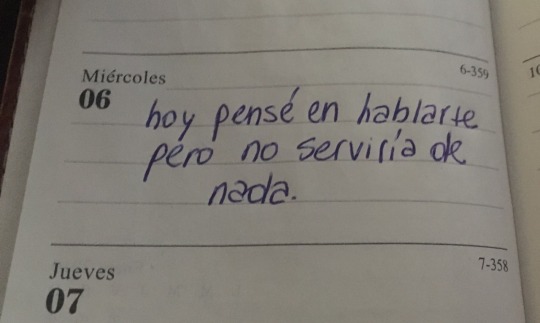 6-359
Miércoles
06
hoy pensé en hablarte
pero no serviría de
nada.
7-358
Jueves
07